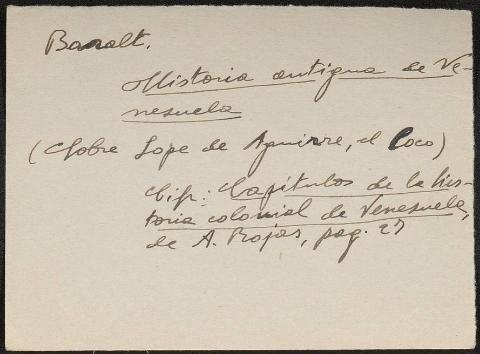 Baralt.
Historia antigua de Ve-
nezuela
(Sobre Lope de Aguirre, el Loco)
Cif: Capítulos de la his-
toria colonial de Venezuela,
de A. Rojas, pag. 27